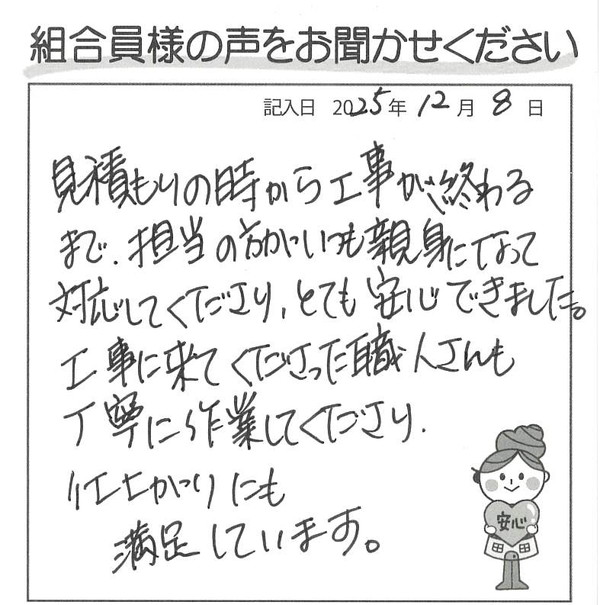 組合員様の声をお聞かせください
記入日 2025年 12月 8日
見積もりの時から工事が終わる
まで、担当の方がいつも親身になって
対応してくださり、とても安心できました。
工事に来てくださった職人さんも
丁寧に作業してくださり、
仕上がりにも
満足しています。
安心